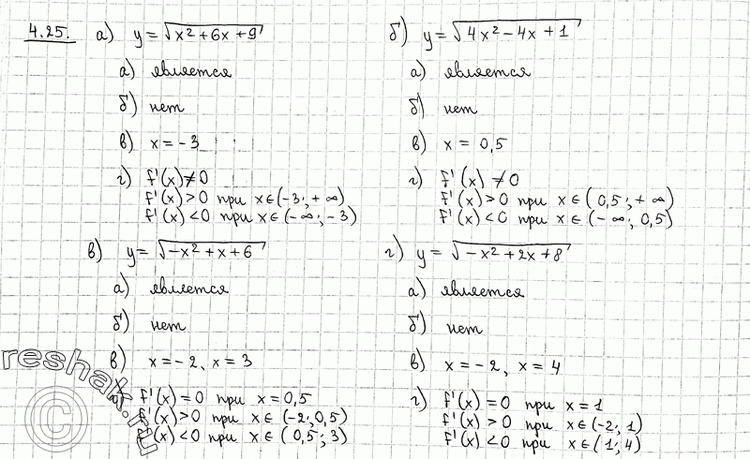 4.25. а) y = √(x² + 6x + 9)
а) является
б) нет
в) x = -3
г) f'(x) ≠ 0
f'(x) > 0 при x ∈ (-3; +∞)
f'(x) < 0 при x ∈ (-∞; -3)
б) y = √(4x² - 4x + 1)
а) является
б) нет
в) x = 0,5
г) f'(x) ≠ 0
f'(x) > 0 при x ∈ (0,5; +∞)
f'(x) < 0 при x ∈ (-∞; 0,5)
в) y = √(-x² + x + 6)
а) является
б) нет
в) x = -2, x = 3
г) f'(x) = 0 при x = 0,5
f'(x) > 0 при x ∈ (-2; 0,5)
f'(x) < 0 при x ∈ (0,5; 3)
г) y = √(-x² + 2x + 8)
а) является
б) нет
в) x = -2, x = 4
г) f'(x) = 0 при x = 1
f'(x) > 0 при x ∈ (-2; 1)
f'(x) < 0 при x ∈ (1; 4)
reshak.ru
©